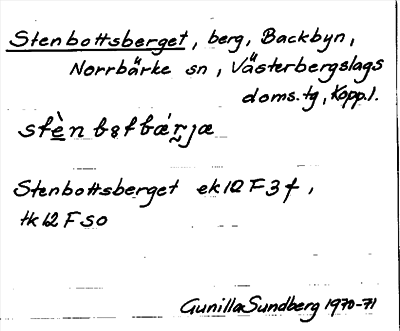 Stenbottsberget, berg, Backbyn,
Norrbärke sn, Västerbergslags
doms. tg, Kopp. l.
stèn bɷtbæ̀rjæ
Stenbottsberget ek 12 F 3 f,
tk 12 F SO
Gunilla Sundberg 1970-71